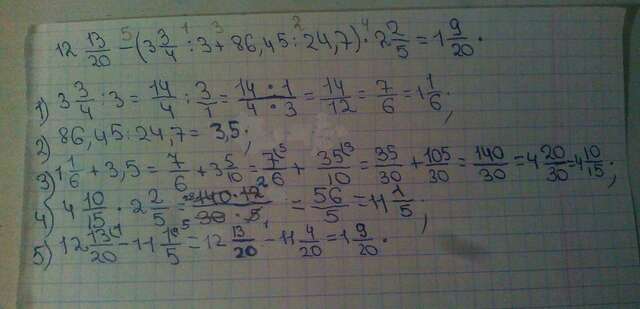 12 13/20 - (3 3/4 : 3 + 86,45 : 24,7) · 2 2/5 = 1 9/20.
1) 3 3/4 : 3 = 14/4 : 3/1 = 14 · 1/4 · 3 = 14/12 = 7/6 = 1 1/6;
2) 86,45 : 24,7 = 3,5;
3) 1 1/6 + 3,5 = 7/6 + 3 5/10 = 7/6 + 35/10 = 35/30 + 105/30 = 140/30 = 4 20/30 = 4 10/15;
4) 4 10/15 · 2 2/5 = 140 · 12/30 · 5 = 56/5 = 11 1/5;
5) 12 13/20 - 11 1/5 = 12 13/20 - 11 4/20 = 1 9/20.